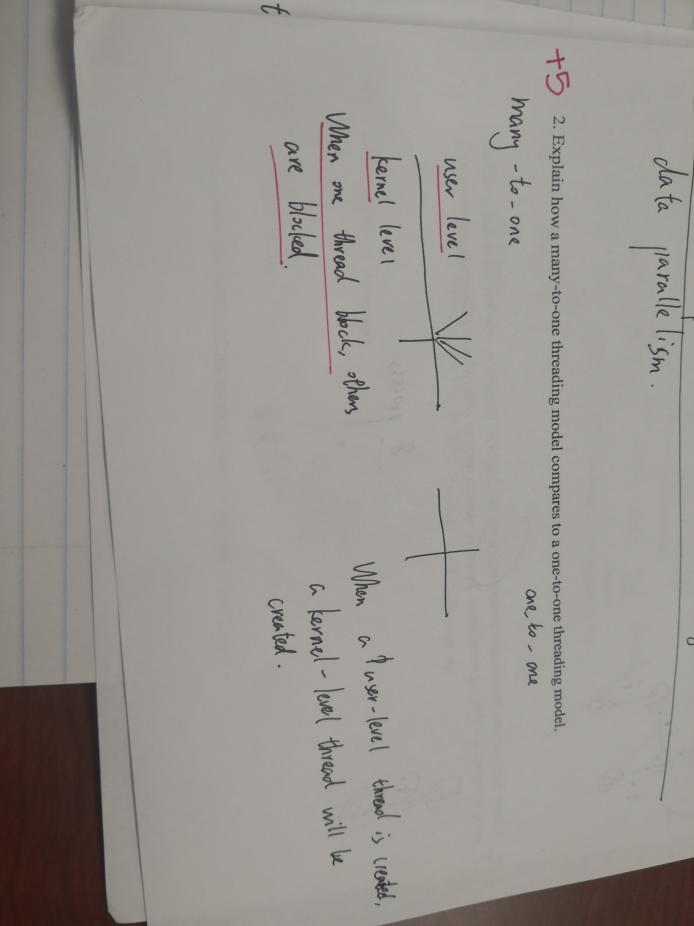 data parallelism.
+5
2. Explain how a many-to-one threading model compares to a one-to-one threading model.
many-to-one
one-to-one
user level
kernel level
When one thread block, others
are blocked.
When a user-level thread is created,
a kernel-level thread will be
created.
t